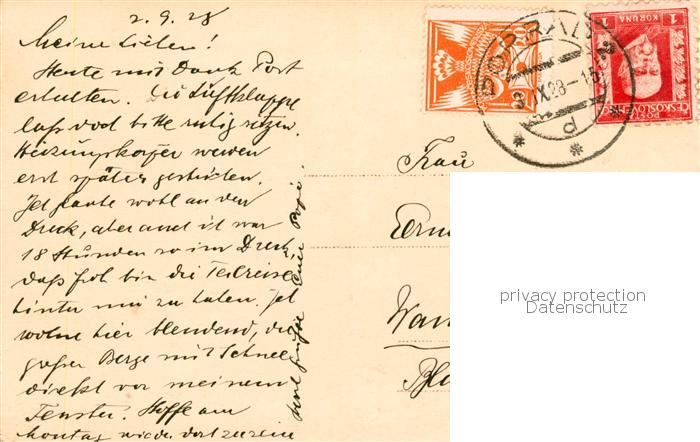 2.9.28
Meine Lieben!
Heute mit Dank Post
erhalten. Die Luftklappe
laß doch bitte ruhig sitzen.
werden
erst später geschickt.
Ich glaube wohl an den
Dreck, aber auch ich war
18 Stunden so im Dreck,
daß froh bin die Teilreise
hinter mir zu haben. Ich
wohne hier blendend, die
großen Berge mit Schnee
direkt vor meinem
Fenster. Hoffe am
Montag wieder dort zu sein
Euer Papi
POPRAD
3.IX.28-15
d
1 1
KORUNA
POŠTA
ČESKOSLOVENSKO
Frau
privacy protection
Datenschutz